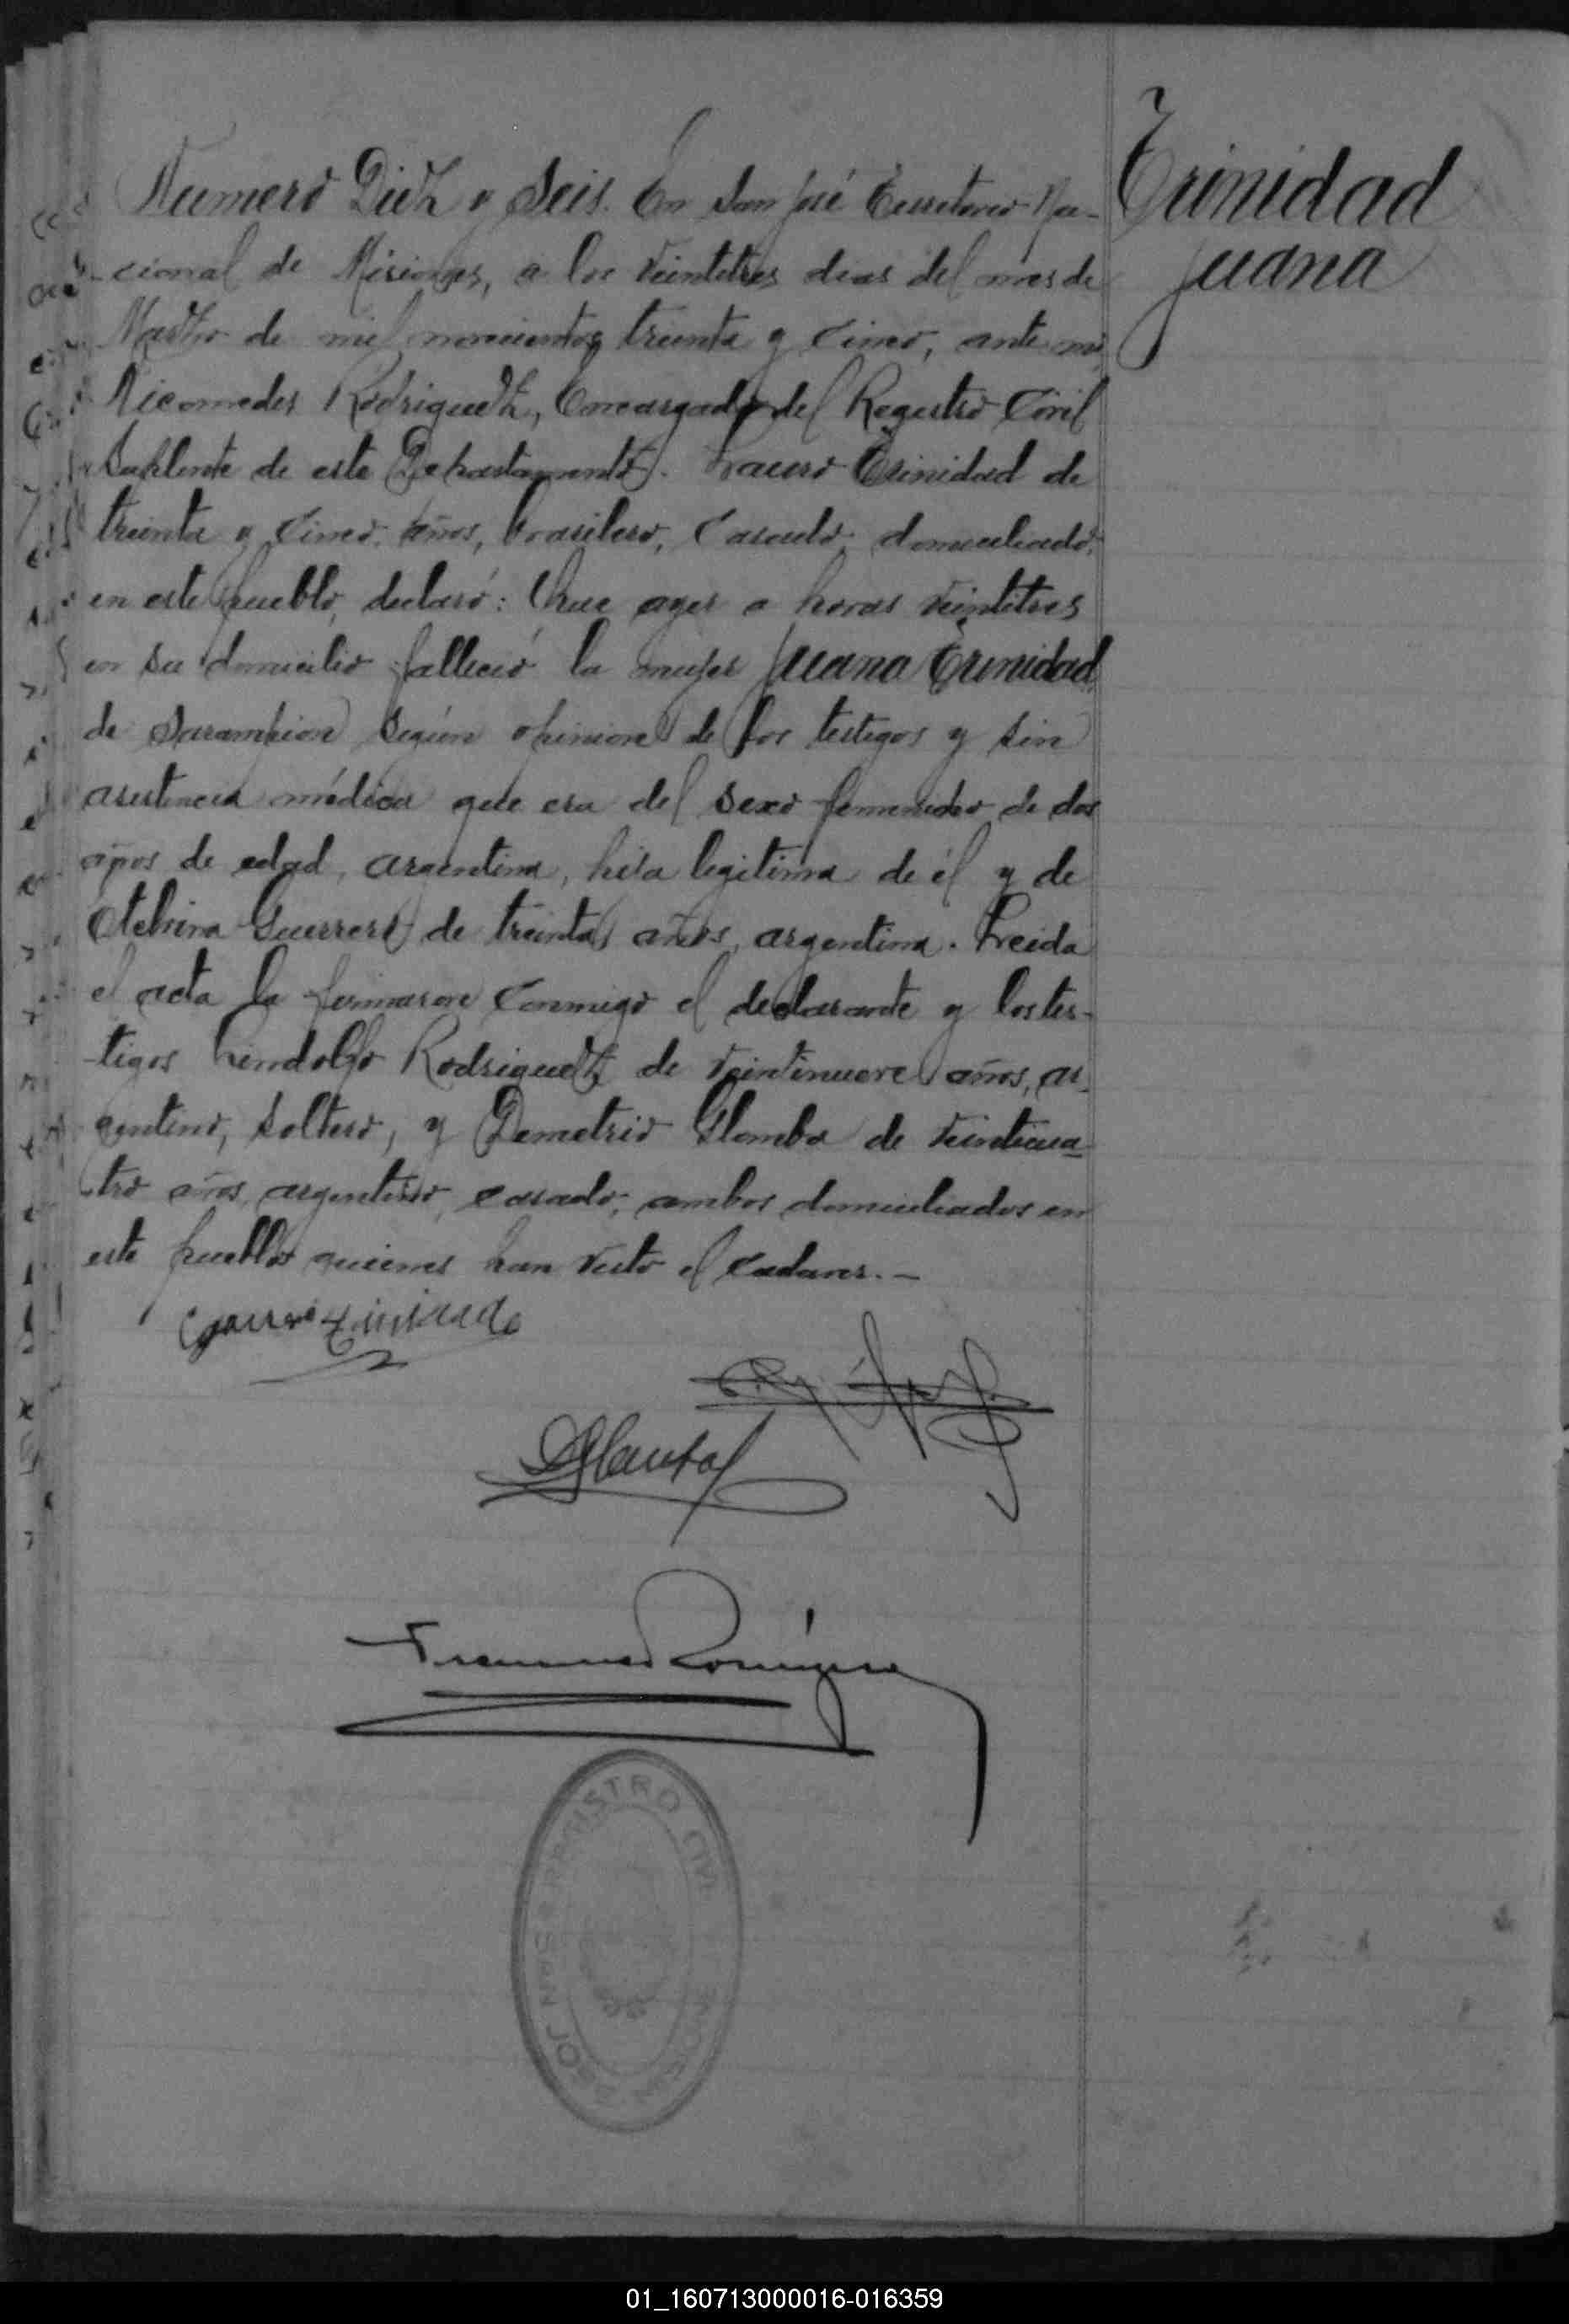 Trinidad
Juana
Numero Diez y Seis. En San José Territorio Na-
cional de Misiones, a los veintitres dias del mes de
Marzo de mil novecientos treinta y cinco, ante mi
Nicomedes Rodriguez, Encargado del Registro Civil
Suplente de este Departamento. Lauro Trinidad de
treinta y cinco años, brasilero, casado, domiciliado
en este pueblo, declaró: Que ayer a horas veintitres
en su domicilio falleció la mujer Juana Trinidad
de Sarampion según opinion de los testigos y sin
asistencia médica que era del sexo femenino de dos
años de edad, argentina, hija legitima de él y de
Guerrero de treinta años, argentina. Leida
el acta la firmaron conmigo el declarante y los tes-
tigos Lindolfo Rodriguez de veintinueve años, ar-
gentino, soltero, y Demetrio de veinticua-
tro años, argentino, casado, ambos domiciliados en
este pueblo quienes han visto el cadaver.-
REGISTRO CIVIL
SAN JOSE
01_160713000016-016359